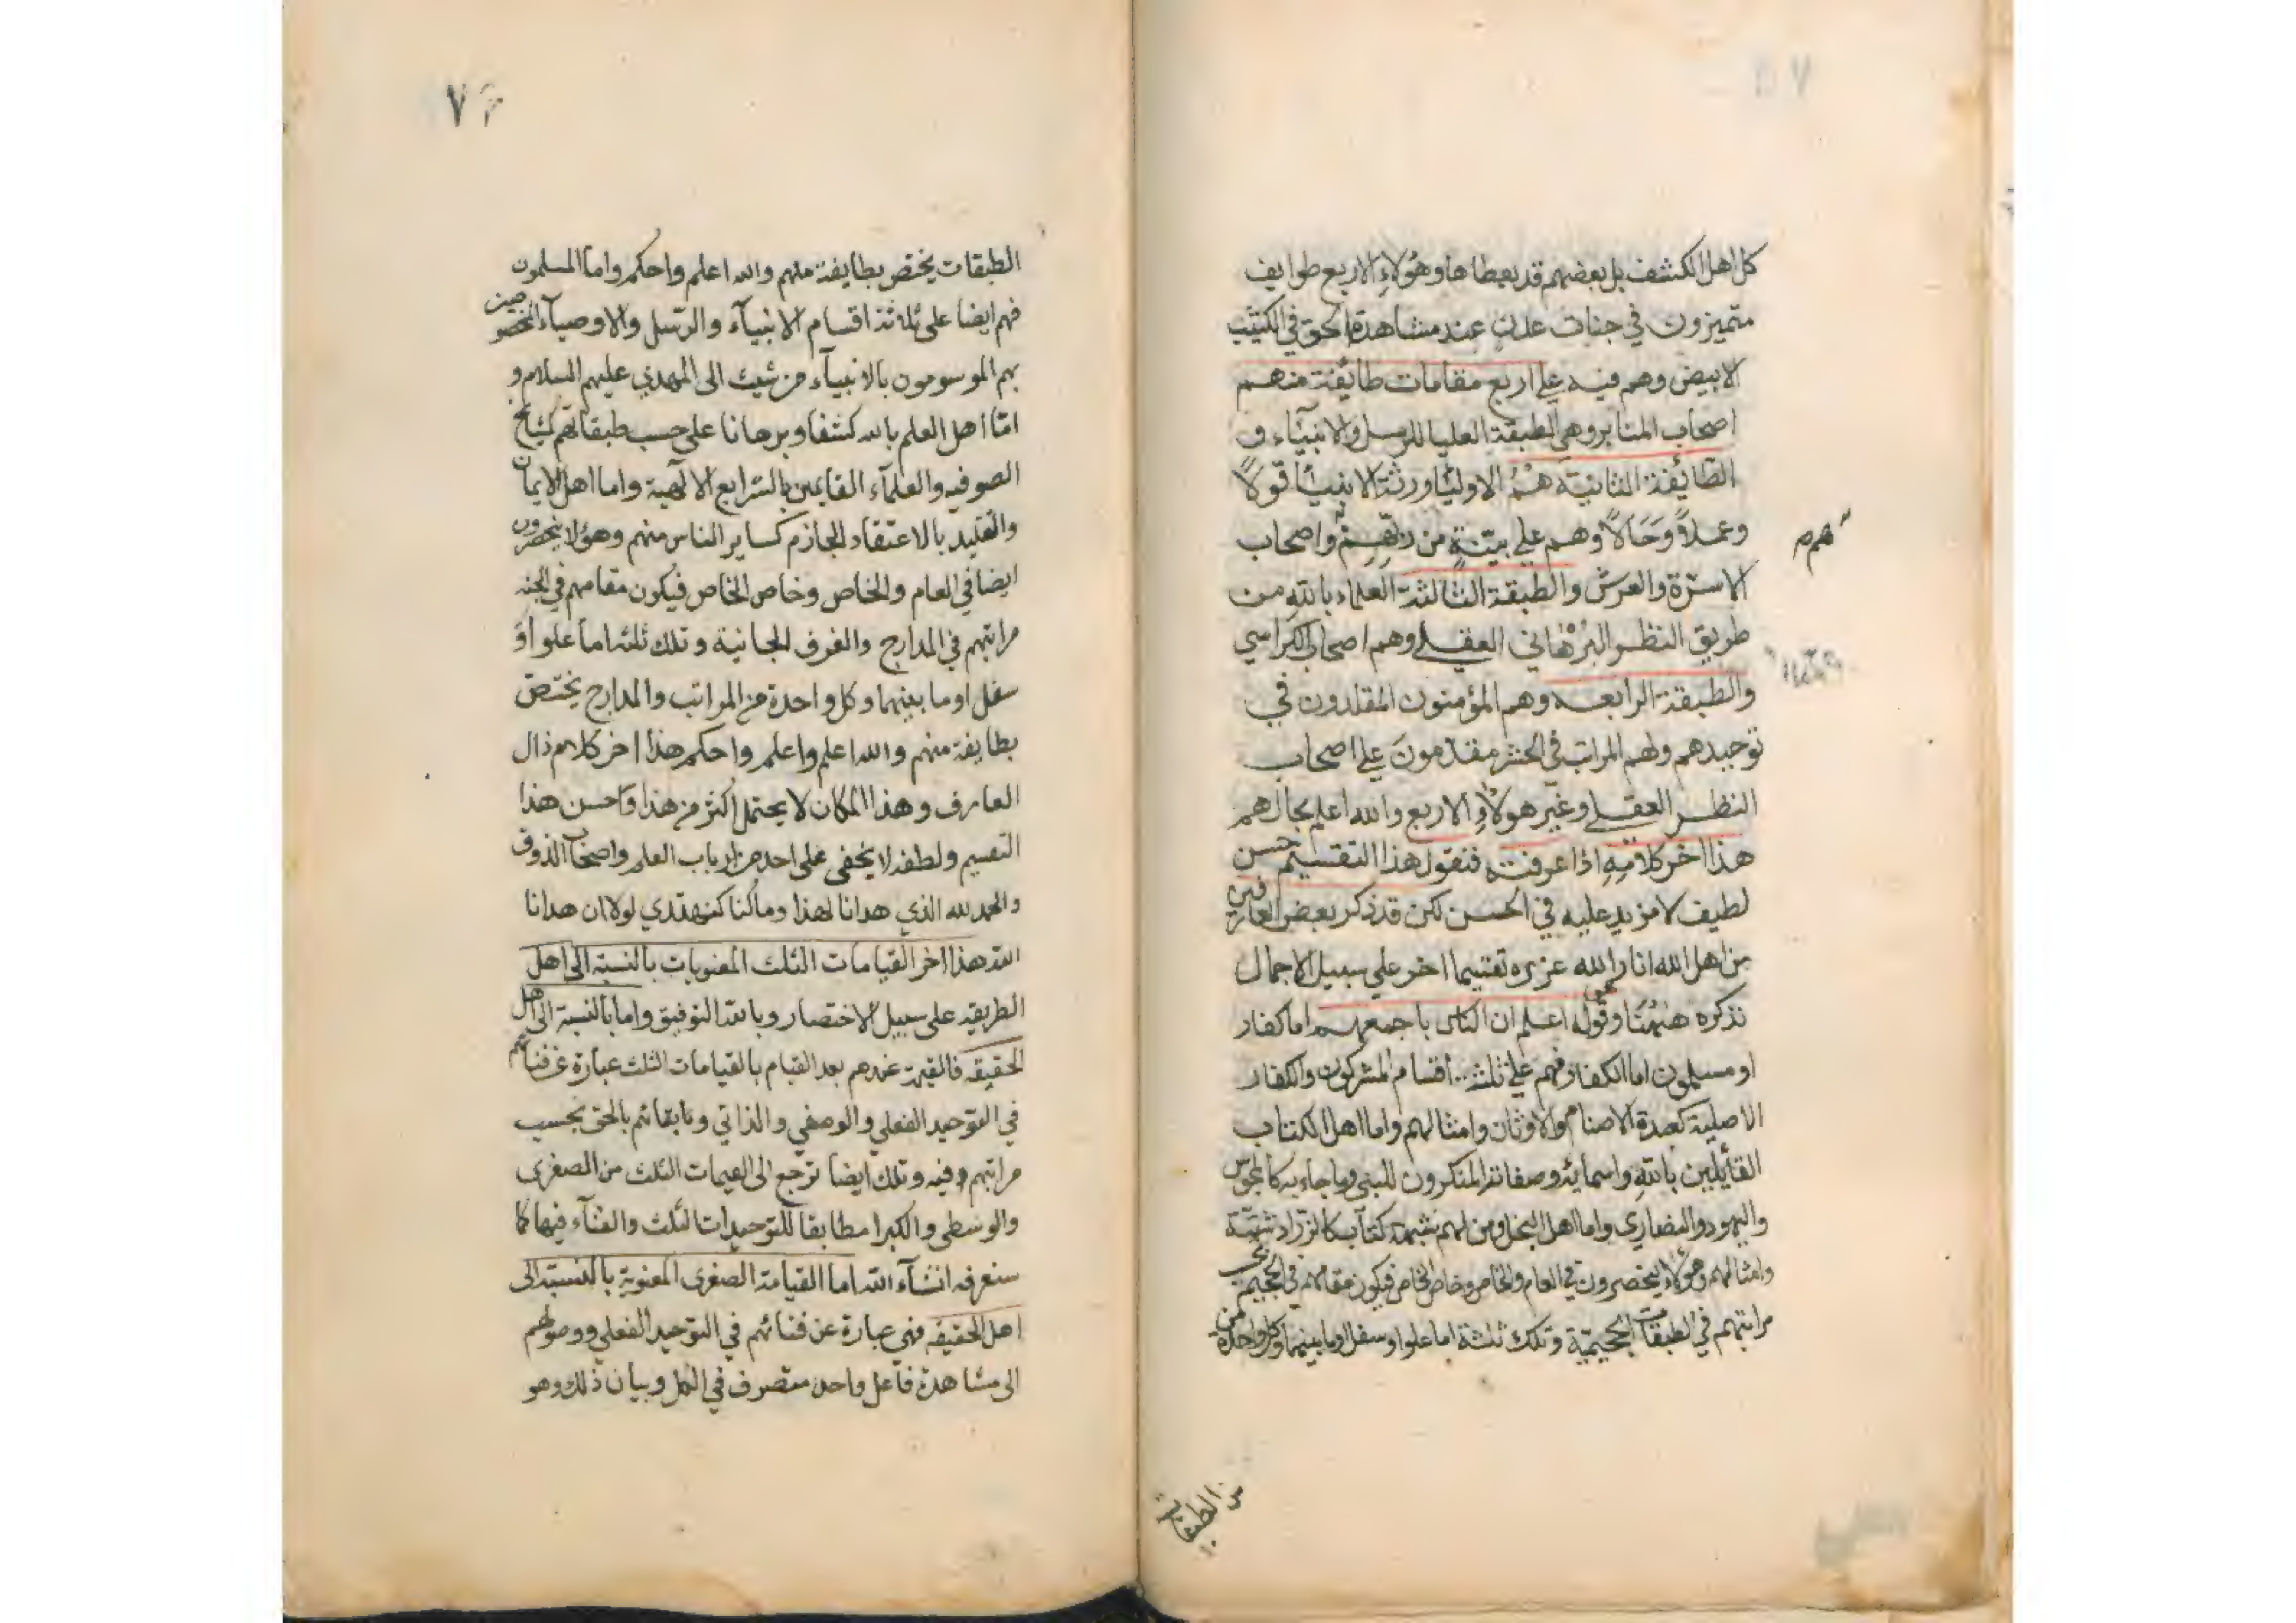 كل اهل الكشف بل بعضهم قد يعطاها وهؤلاءِ الاربع طوايف
متميزون في جنات عدنٍ عند مشاهدة الحق في الكثيب
الابيض وهم فيه على اربع مقامات طائفة منهم
اصحاب المنابر وهي الطبقة العليا للرسل والانبيٓاء و
الطّائفة الثانية هْمُ الاوليٓا ورثة الانبيٓا قولًا
وعملاً وَحَالًا وهم على بيّنةٍ من ربّهِمْ واصحاب
هم
الاسرّة والعرش والطبقة الثالثة العلماء باللهِ من
طريق النظر البُرْهاني العقلے وهم اصحاب الكراسي
والطبقة الرابعه وهم المؤمنون المقلدون في
توحيدهم ولهم المراتب في الحشر مقدّمونَ على اصحاب
النظر العقلے وغير هولاءِ الاربع والله اعلم بحالهم
هذا اخر كلامِهِ اذا عرفت فنقول هذا التقسيم حسن
لطيف لا مزيد عليه في الحسن لكن قد ذكر بعض العارفين
من اهل الله انار الله تقسيما اخر على سبيل الاجمال
نذكره هيهُنَا وقوله اعلم ان الناس باجمعهم اما كفار
او مسلمون اما الكفار فهم علىٰ ثلثة اقسام المشركون والكفار
الاصلية كعبدة الاصنام والاوثان وامثالهم واما اهل الكتاب
القائلين باللهِ واسمائه وصفاته المنكرون للنبي وما جاء به كالمجوس
واليهود والنصاري واما اهل النحل ومن لهم شبهة كتاب كالزرادشتية
وامثالهم وهؤلاء ينحصرون في العام والخاص وخاص الخاص فيكون مقامهم في الجحيم بحسب
مراتبهم في الطبقات الجحيمية وتلك ثلثة اما علوا او سفل او ما بينهما وكل واحدة من
من الطبقات
٧٦
الطبقات يختص بطايفة منهم والله اعلم واحكم واما المسلمون
فهم ايضا على ثلاثة اقسام الانبيآء والرسل والاوصيآء المخصوصين
بهم الموسومون بالانبيآء من شيث الى المهدي عليهم السلام و
امّا اهل العلم بالله كشفا وبرهانا على حسب طبقاتهم كمشايخ
الصوفيه والعلمآء القايمين بالشرايع الالٓهية واما اهل الايمان
والتقليد بالاعتقاد الجازم كساير الناس منهم وهؤلا ينحصرون
ايضا في العام والخاص وخاص الخاص فيكون مقامهم في الجنه
مراتبهم في المدارج والغرف الجنانية وتلك ثلثه اما علو او
سفل او ما بينهما وكل واحدة من المراتب والمدارج يختص
بطايفة منهم والله اعلم واعلم واحكم هذا اخر كلام ذلك
العارف وهذا المكان لا يحتمل اكثر من هذا وحسن هذا
التقسيم ولطفه لا يخفى على احد من ارباب العلم واصحاب الذوق
والحمد لله الذي هدانا لهذا وما كنا لنهتدي لولا ان هدانا
الله هذا اخر القيامات الثلث المعنويات بالنسبة الى اهل
الطريقه على سبيل الاختصار وبالله التوفيق واما بالنسبة الى اهل
الحقيقه فالقيمة عندهم بعد القيام بالقيامات الثلث عبارة عن فنائهم
في التوحيد الفعلي والوصفي والذاتي وبقائهم بالحق بحسب
مراتبهم فيه وتلك ايضا ترجع الى القيمات الثلث من الصغرى
والوسطى والكبرا مطابقا للتوحيدات الثلث والفنآء فيها كما
سنعرفه انشآء الله اما القيامة الصغرى المعنوية بالنسبة الى
اهل الحقيقه فهي عبارة عن فنائهم في التوحيد الفعلي ووصولهم
الى مشاهدة فاعل واحد متصرف في الكل وبيان ذلك وهو